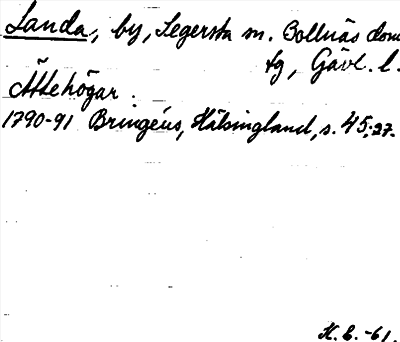 Landa, by, Segersta sn. Bollnäs doms
tg, Gävl. l.
Ättehögar:
1790-91 Bringéus, Hälsingland, s. 45, 27.
H. E. -61.